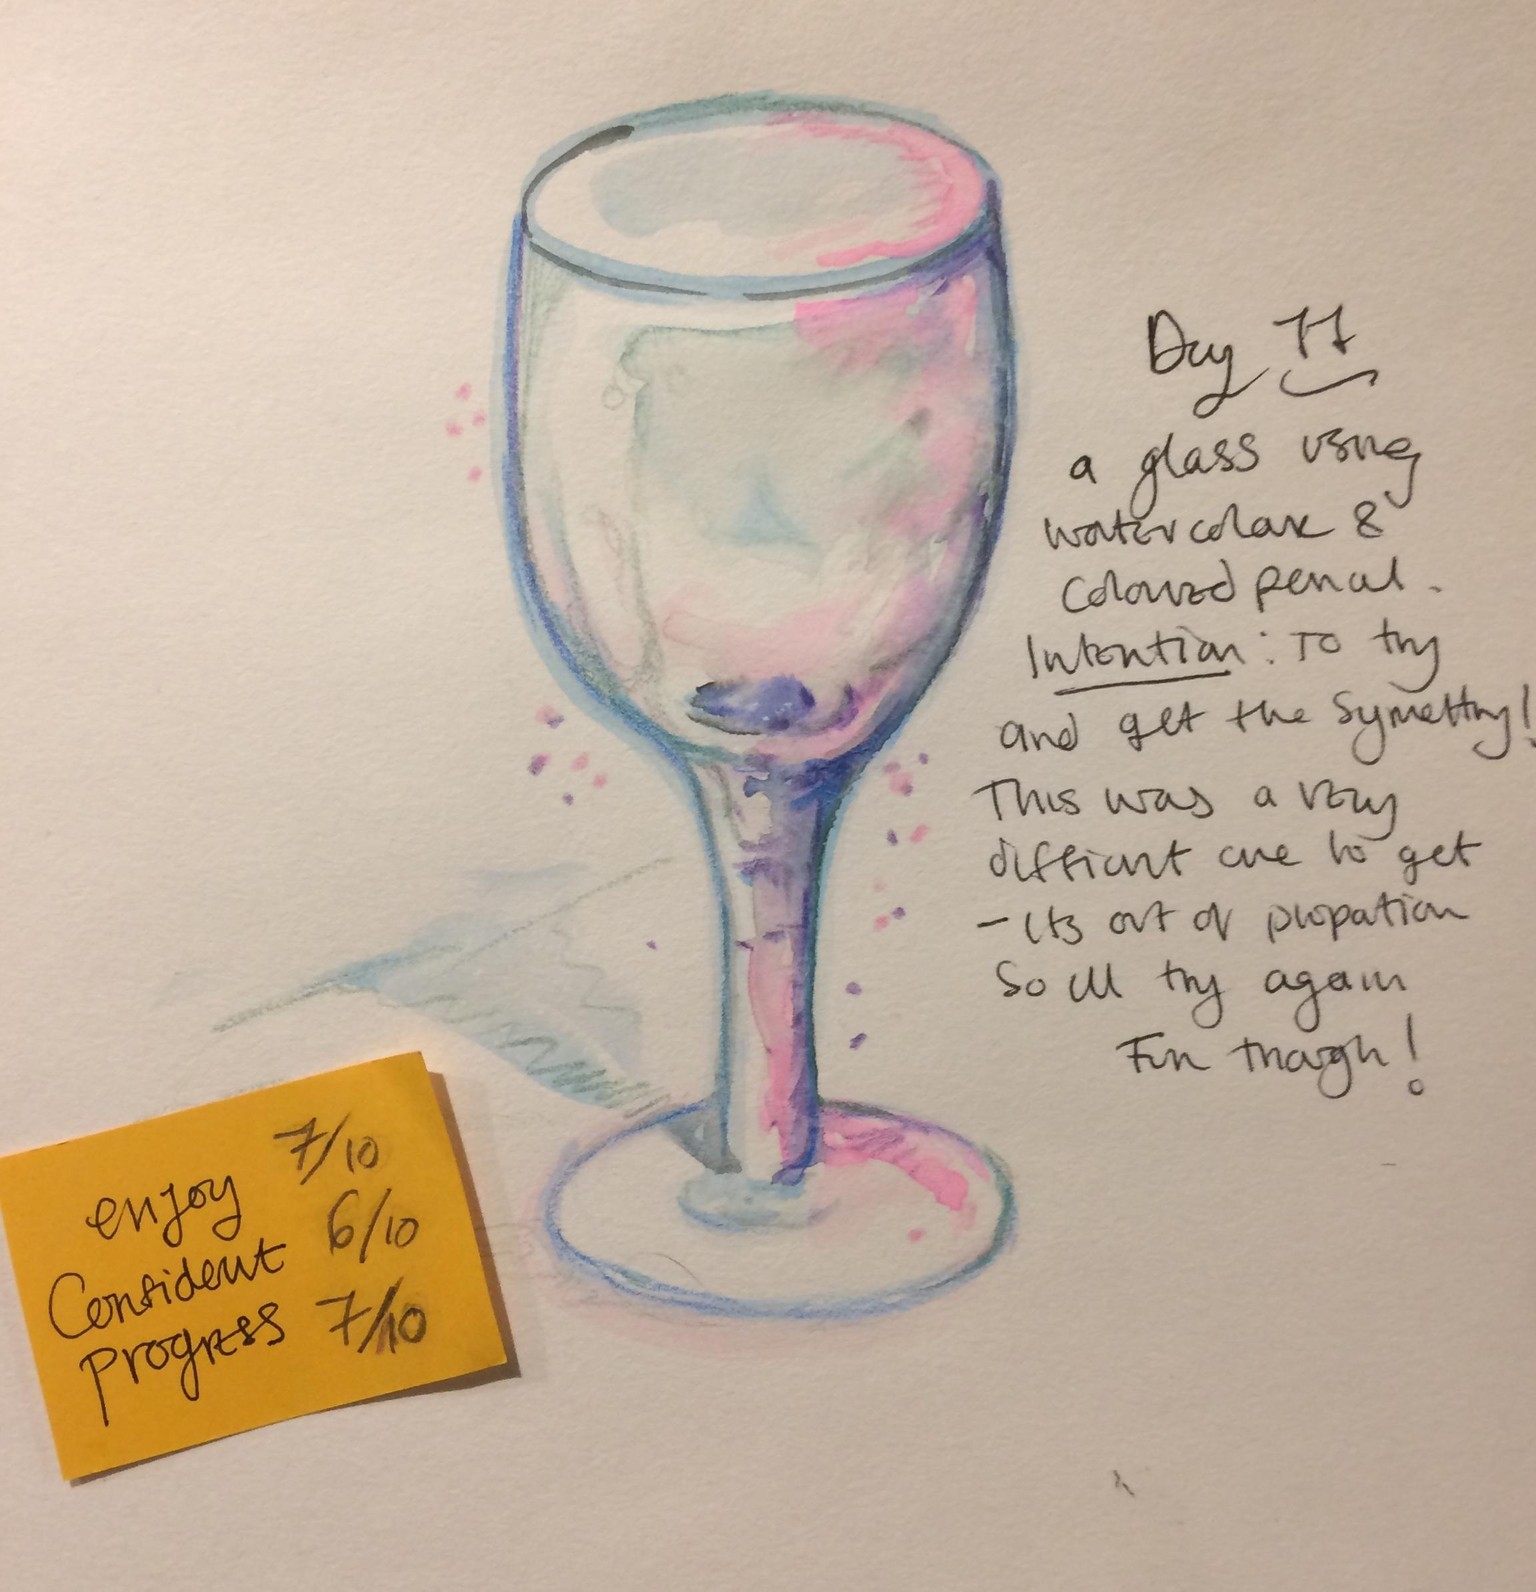 Day 77
a glass using
watercolour &
coloured pencil.
Intention: To try
and get the symettry!
This was a very
difficult one to get
- its out of propation
So ill try again
Fun though!
enjoy 7/10
Confident 6/10
progress 7/10